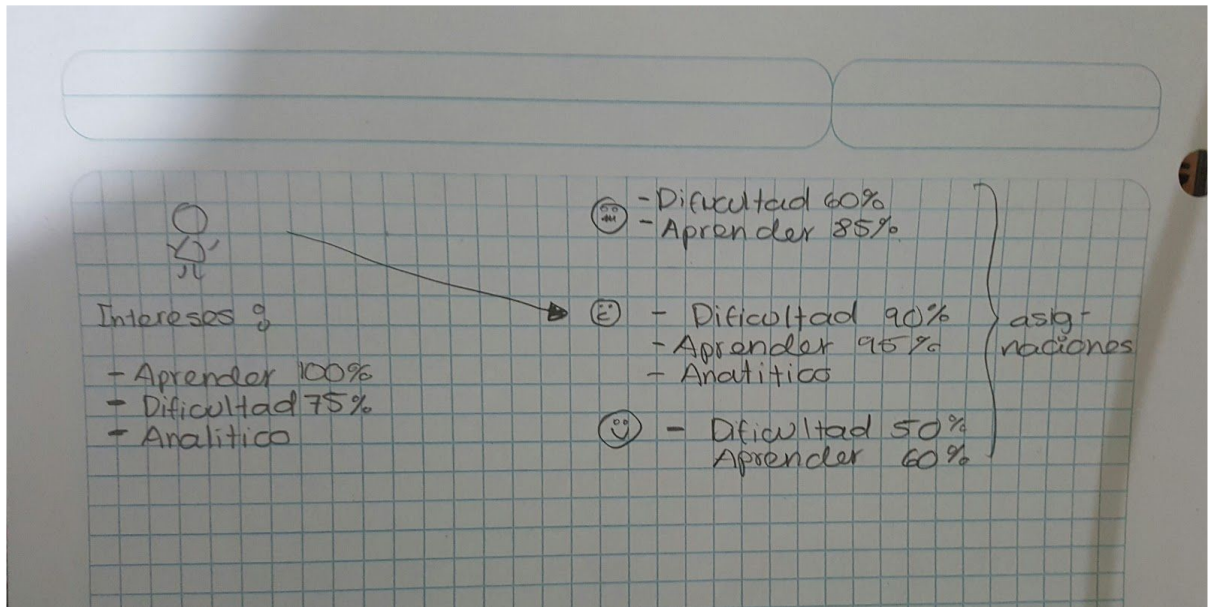 Intereses :
- Aprender 100%
- Dificultad 75%
- Analitico
- Dificultad 60%
- Aprender 85%
- Dificultad 90%
- Aprender 95%
- Analitico
- Dficultad 50%
Aprender 60%
asig-
naciones